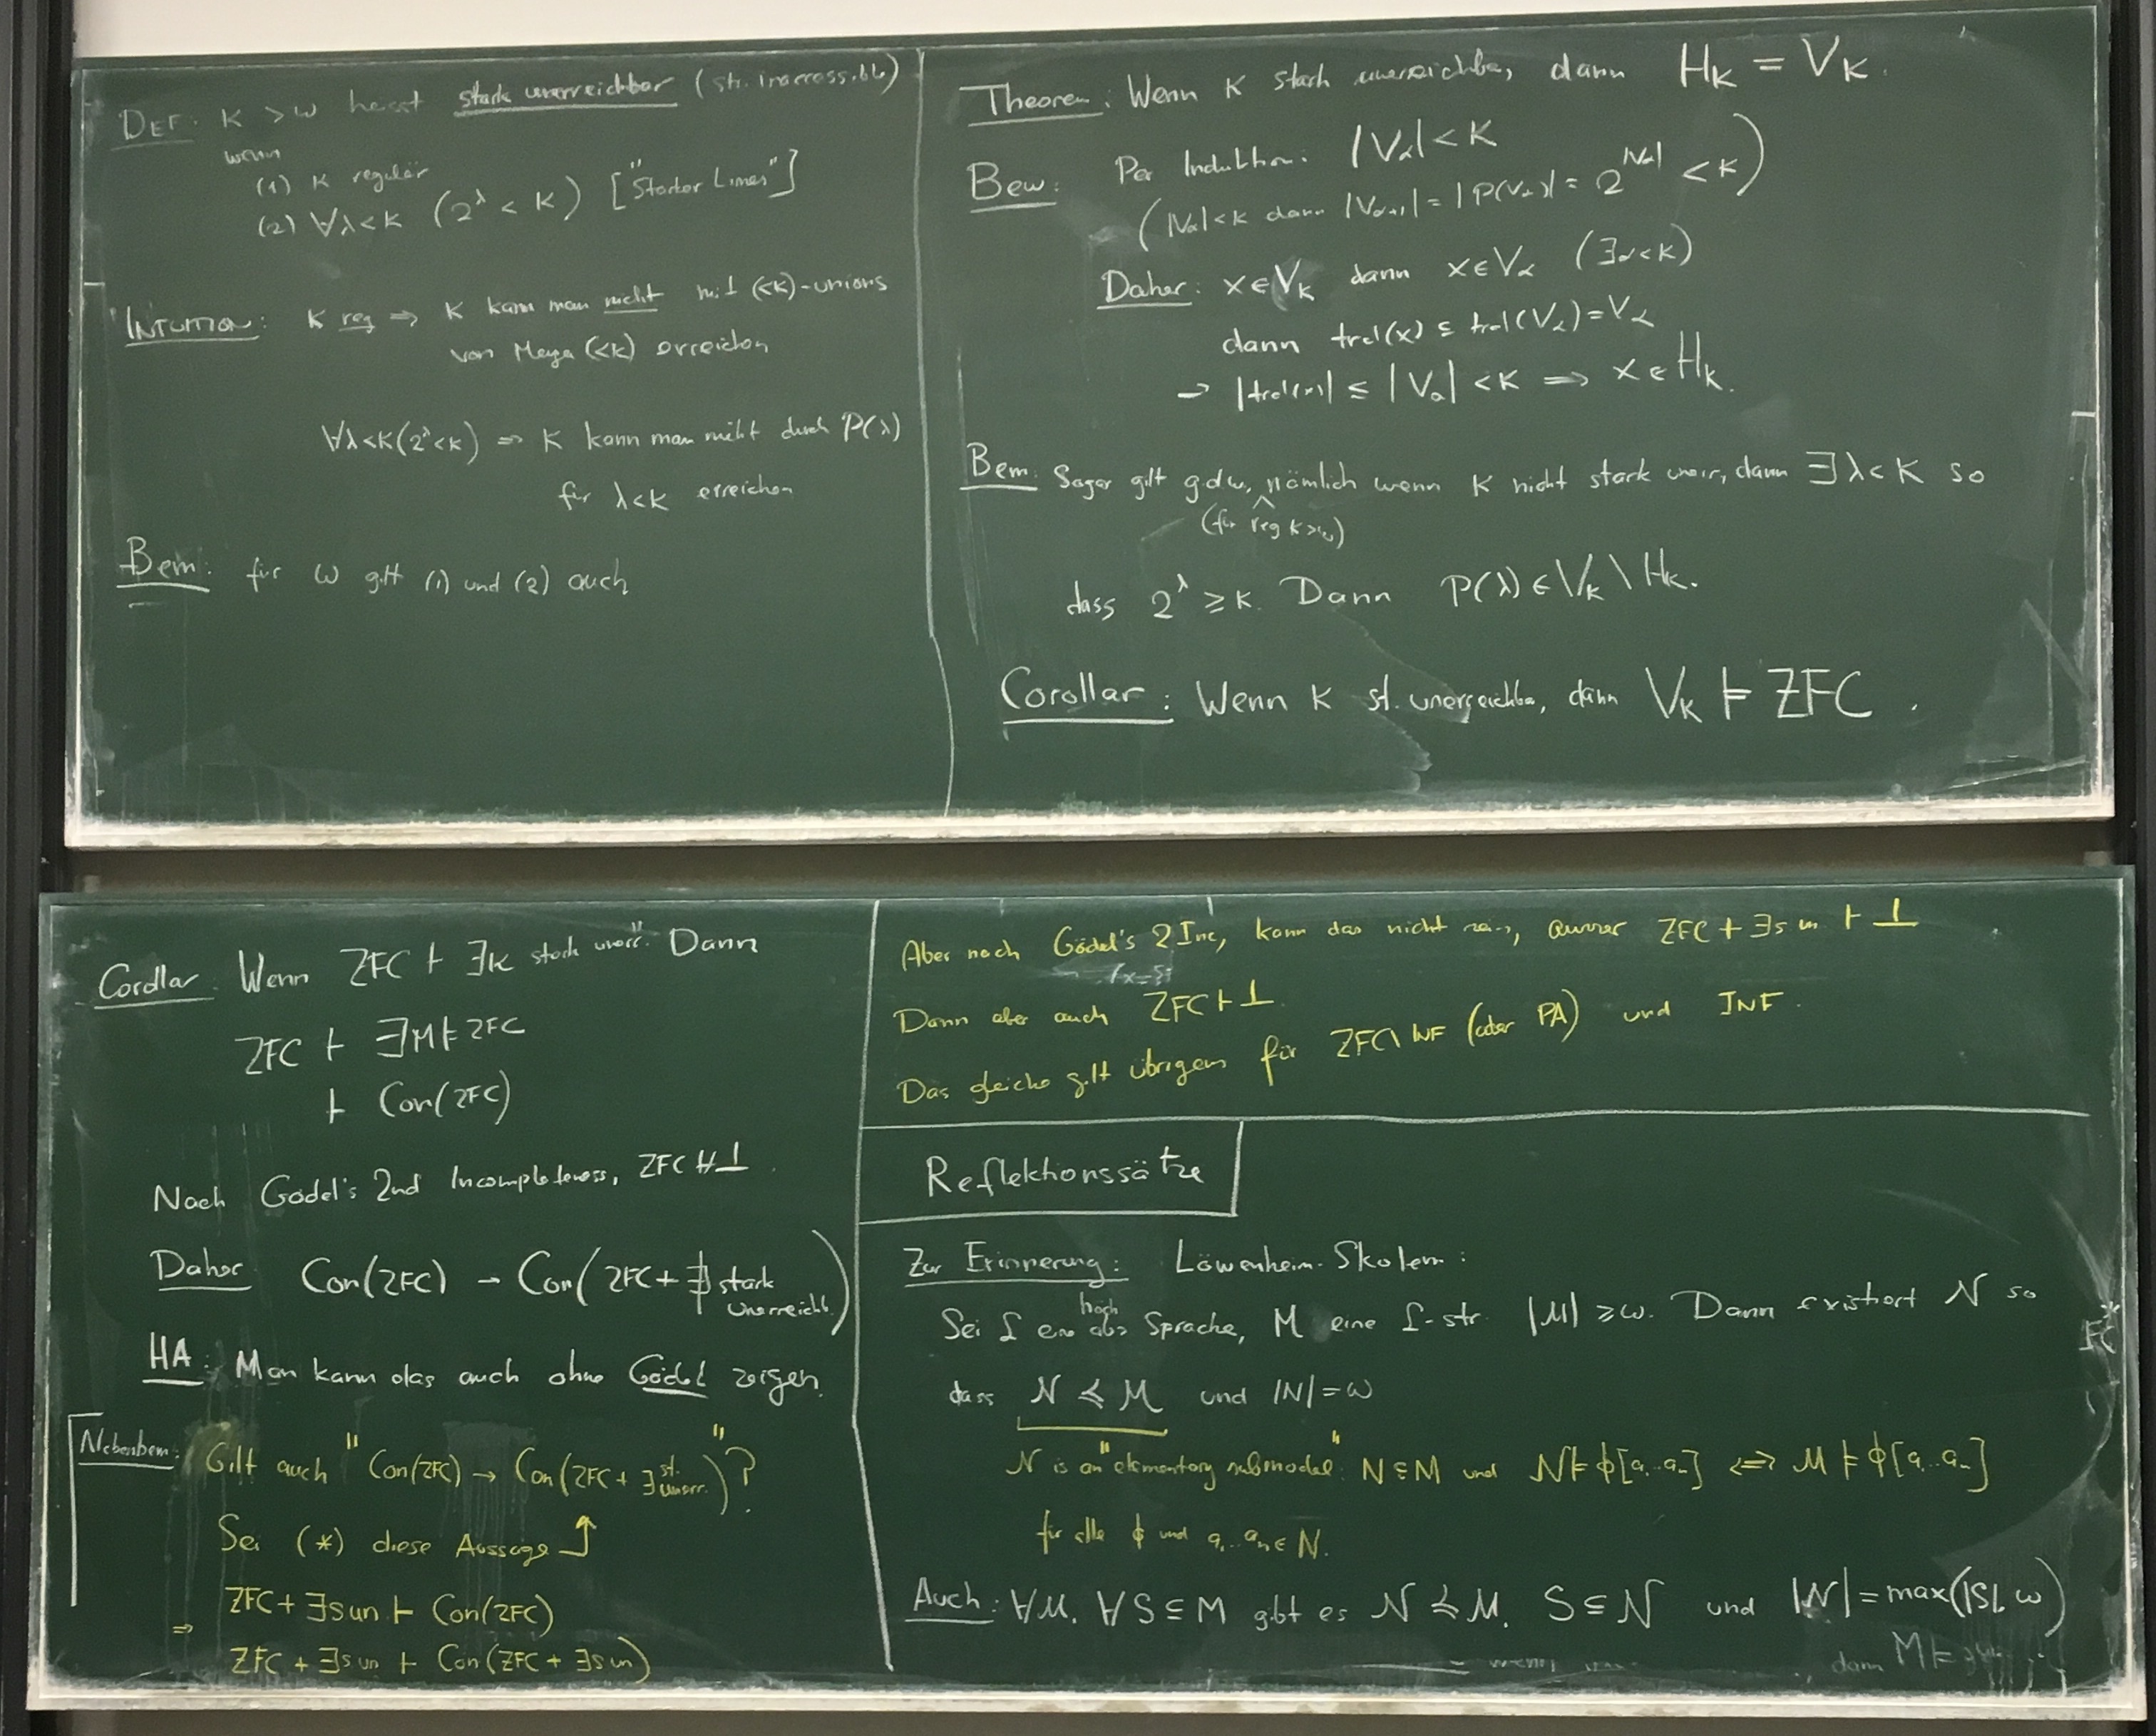 DEF. κ > ω heisst stark unerreichbar (str. inaccessible)
wenn
(1) κ regulär
(2) ∀λ<κ (2^λ < κ) ["Starker Limes"]
INTUITION: κ reg ⇒ κ kann man nicht mit (<κ)-unions
von Menge (<κ) erreichen
∀λ<κ(2^λ<κ) ⇒ κ kann man nicht durch P(λ)
für λ<κ erreichen
Bem: für ω gilt (1) und (2) auch
Theorem: Wenn κ stark unerreichbar, dann H_κ = V_κ.
Bew: Per Induktion: |V_α| < κ
(|V_α|<κ dann |V_α+1| = |P(V_α)| = 2^|V_α| < κ)
Daher: x∈V_κ dann x∈V_α (∃α<κ)
dann trcl(x) ⊆ trcl(V_α)=V_α
→ |trcl(x)| ≤ |V_α| < κ ⇒ x ∈ H_κ.
Bem: Sogar gilt g.d.w., nämlich wenn κ nicht stark unerr, dann ∃λ<κ so
(für reg κ>ω)
dass 2^λ ≥ κ. Dann P(λ) ∈ V_κ \ H_κ.
Corollar: Wenn κ st. unerreichba, dann V_κ ⊨ ZFC.
Corollar: Wenn ZFC ⊢ ∃κ stark unerr." Dann
ZFC ⊢ ∃M⊨ZFC
⊢ Con(ZFC)
Nach Gödel's 2nd Incompleteness, ZFC ⊬ ⊥
Daher Con(ZFC) → Con(ZFC + ∄ stark
unerreichb.)
HA: Man kann das auch ohne Gödel zeigen.
Nebenbem: Gilt auch "Con(ZFC) → Con(ZFC + ∃ st. unerr.)"?
Sei (*) diese Aussage ↑
ZFC + ∃sun ⊢ Con(ZFC)
⇒ ZFC + ∃sun ⊢ Con(ZFC + ∃sun)
Aber nach Gödel's 2Inc, kann das nicht sein, ausser ZFC + ∃sun ⊢ ⊥
Dann aber auch ZFC ⊢ ⊥.
Das gleiche gilt übrigens für ZFC\INF (oder PA) und INF.
Reflektionssätze
Zur Erinnerung: Löwenheim-Skolem:
höch
Sei L eine abz Sprache, M eine L-str. |M| ≥ ω. Dann existiert N so
dass N ≼ M und |N| = ω
N is an "elementary submodel": N⊆M und N⊨ϕ[a₁...aₙ] ⟺ M⊨ϕ[a₁...aₙ]
für alle ϕ und a₁...aₙ∈N.
Auch: ∀M, ∀S⊆M gibt es N≼M, S⊆N und |N| = max(|S|, ω)
dann M⊨